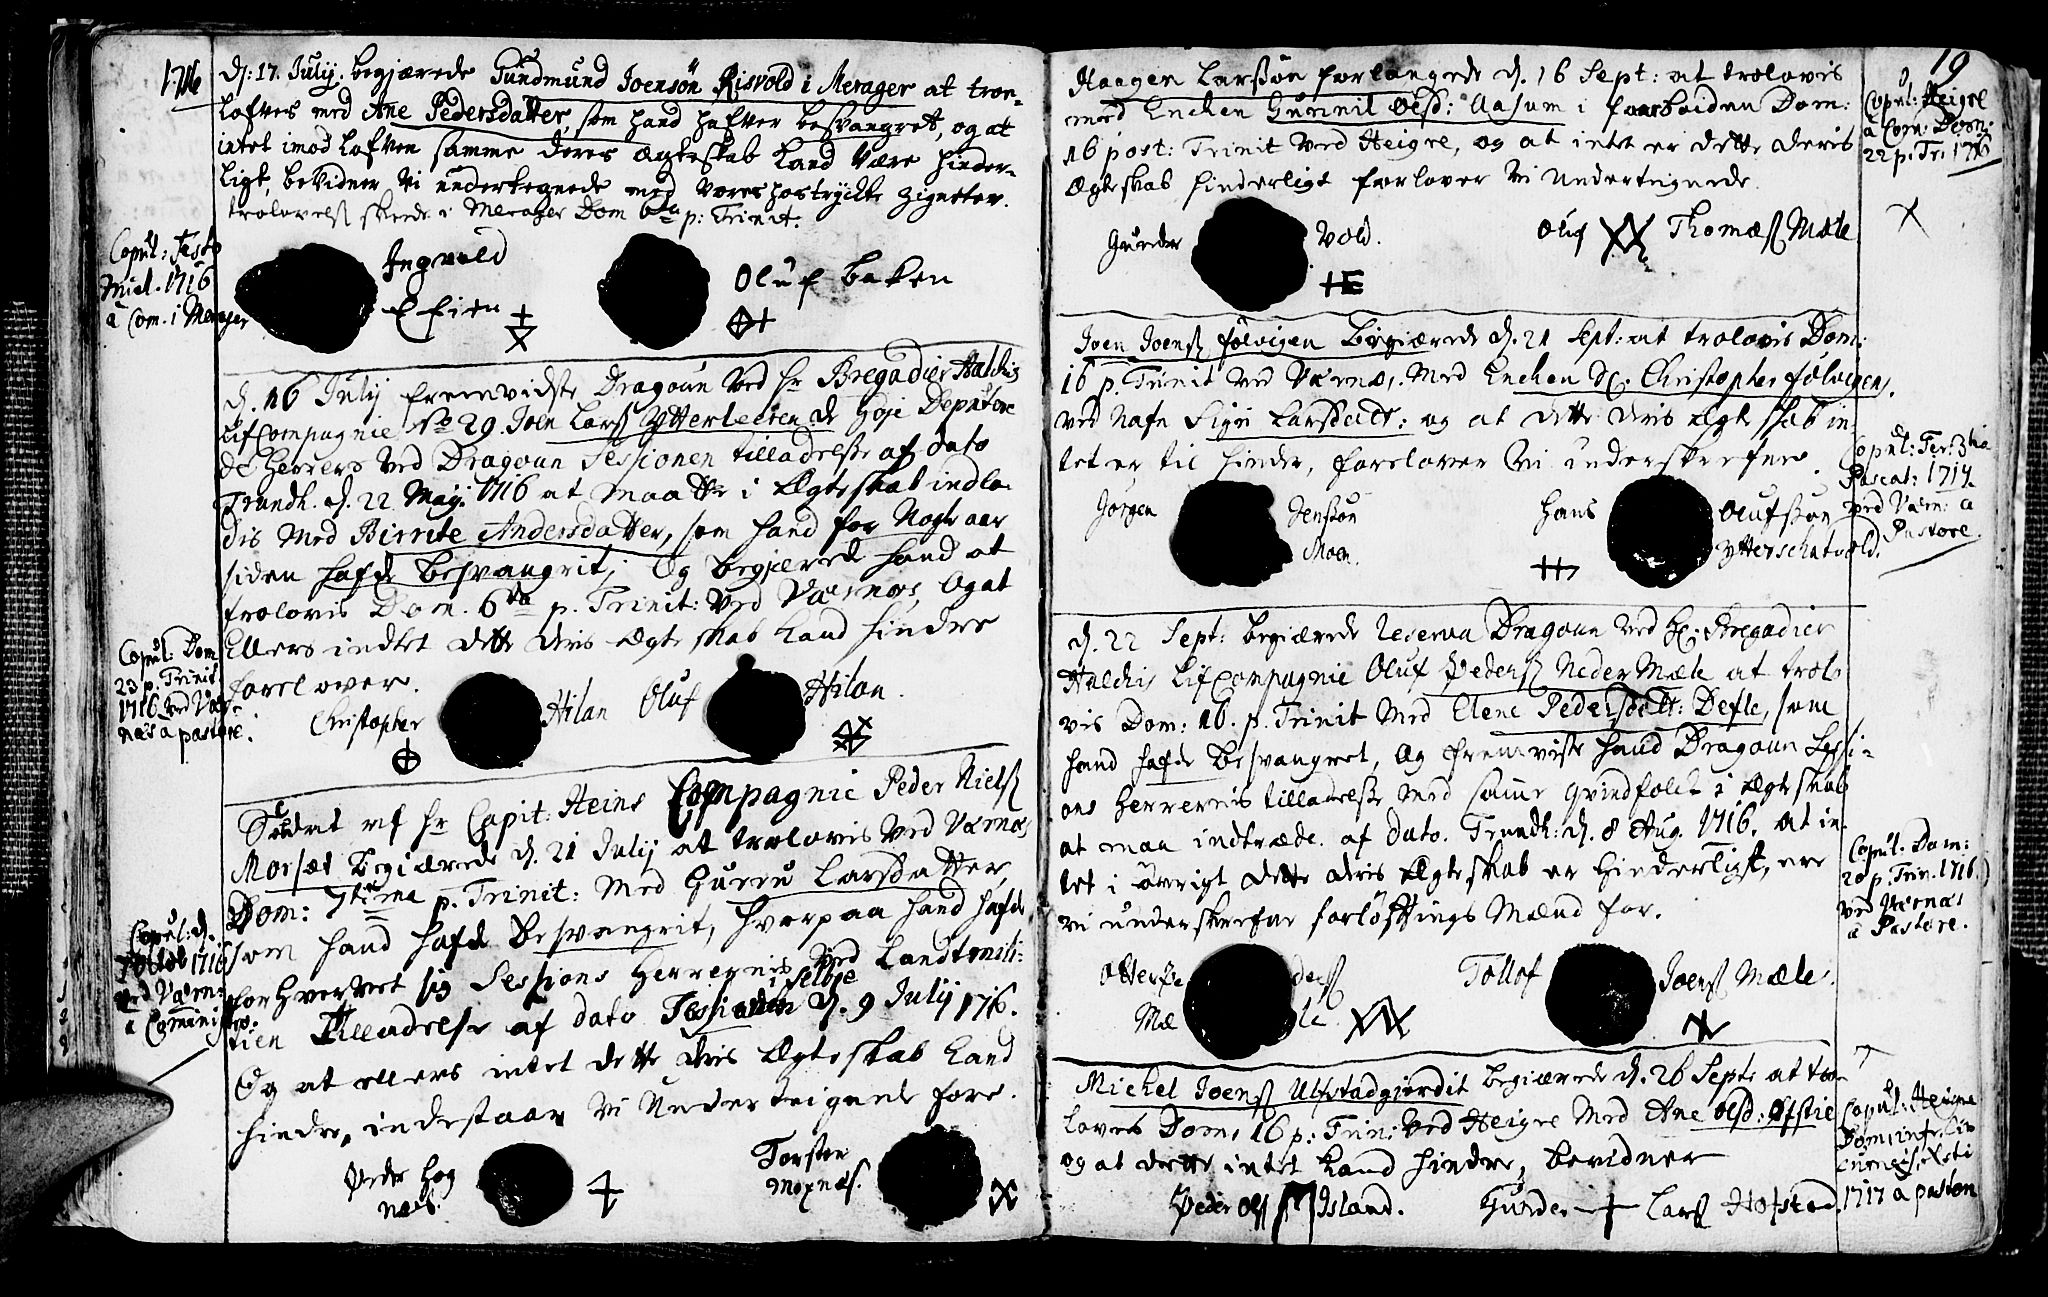 1716
d: 17. July. begjærede Gundmund Joensön Risvold i Merager at troe-
lofves med Ane Pedersdatter, som hand hafver besvangret, og at
intet imod lofven samme deres ægteskab kand være hinder-
ligt, bevidner vi undertegnede med vores hostryckte Zigneter.
trolovelsen skeede i Merager Dom 6ta p: Trinit.
Copul: Festo
Mich. 1716
a Com. i Merager
Ingvold
Oluf Baken
d. 16 July fremvidste Dragoun ved hr Bregadier Halchis
LifCompagnie No 29. Joen Larsß Ytterleeren de Høje Depute-
de Herrers ved Dragoun Sessionen tilladelsse af dato
Trundh. d. 22 Maij. 1716 at maatte i Ægteskab indla-
dis med Birrete Andersdatter, som hand for Nogle aar
siden hafde besvangrit; Og begjærede hand at
trolovis Dom. 6ta p. Trinit: ved Værnæs, Og at
Ellers indtet dette deris ægteskab kand hindre
forelover.
Copul: Dom
23 p. Trinit.
1716 ved Vær-
næs a pastore.
Christopher Hilan Oluf Hilan.
Soldat af hr Capit: Heins Compagnie Peder Nielsß
Morsæt begiærede d. 21 July at trolovis ved Værnæs
Dom: 7tima p. Trinit: med Guru Larsdatter,
som hand hafde besvangrit, hvorpaa hand hafde
forhvervet sig Sessions Herrernis ved Landtmili-
i Selboe
tien Tilladelse af dato d. 9 July 1716.
Og at ellers intet dette deris ægteskab kand
hindre, indestaar vi Underteignede fore.
Copul: d.
1716
ved Værn:
a
Peder Hog
næs.
Torsten
Moxnæs.
19
Haagen Larssøn forlangede d. 16 Sept: at trolovis
med Enchen Gunnil Olsd: Aasum i Dom:
16 post: Trinit ved Heigre, og at intet er dette deris
Ægteskab hinderligt forlover vi Underteignede.
Copul: Heigre
a Com: Dom:
22 p. Tr: 1716
Gunder Vold. Oluf Thomæsß Mæle
Joen Joensß Folvigen Begiærede d. 21 Sept: at trolovis Dom:
16 p. Trinit ved Værnæs. med Enchen Sl. Christopher Folvigens,
ved Nafn Sigri Larsdatt: og at dette deris Ægteskab in-
tet er til hinder, forelover vi underskrefne.
Copul: Fer: 3tia
Pascat: 1717.
ved Værn: a
Pastore.
Jørgen Jenssøn
Moen.
Hans Olufssøn
Ytterschatvold.
d. 22 Sept: begiærede Reserva Dragoun ved Hr: Bregadier
Halchis LifCompagnie Oluf Pedersß Neder Mæle at trolo-
vis Dom: 16. p. Trinit med Elene Pedersdatt: Defle, som
hand hafde besvangret, Og fremviste hand Dragoun Sessi-
ons Herrernis tilladelsse med samme Qvindfolck i Ægteskab
at maa indtræde. af dato. Trundh: d. 8 Aug. 1716. At in-
tet i øvrigt dette deris Ægteskab er hinderligt, ere
vi underskrefne forløftnings Mænd for.
Copul: Dom:
20 p. Trin. 1716.
ved Værnæs
a Pastore.
Tollof Joensß Mæle.
Michel Joensß Ulstadgjerdit begiærede d. 26 Sept: at tro-
loves Dom: 16 p: Trin: ved Heigre med Ane Olsd: Øfstie
og at dette intet kand hindre, bevidner
Copul: Heigre
1717 a pastore
Peder Olsß Island. Gunder Larsß Hofstad.